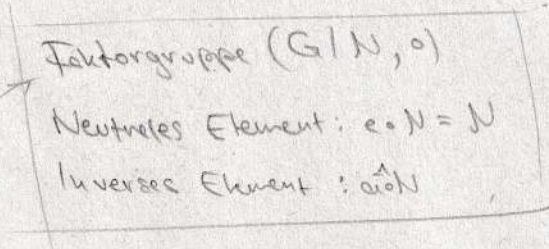 Faktorgruppe (G/N, ∘)
Neutrales Element: e∘N = N
Inverses Element : â∘N